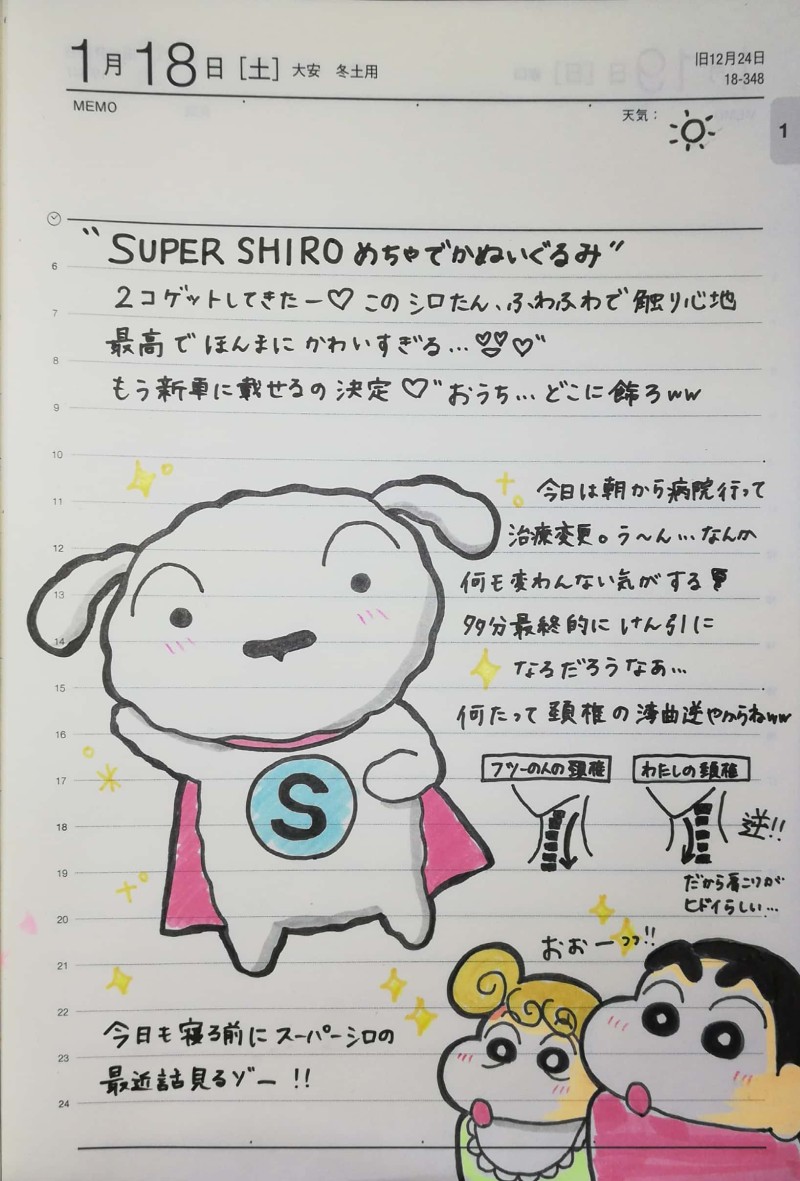 1月18日[土] 大安 冬土用
旧12月24日
18-348
MEMO
天気：
1
"SUPER SHIRO めちゃでかぬいぐるみ"
2コゲットしてきたー♡このシロたん、ふわふわで触り心地
最高でほんまにかわいすぎる…♡♡♡"
もう新車に載せるの決定♡"おうち…どこに飾ろww
今日は朝から病院行って
治療変更。う～ん…なんか
何も変わんない気がする
多分最終的にけん引に
なるだろうなぁ…
何たって頚椎の湾曲逆やからねww
フツーの人の頚椎
わたしの頚椎
逆!!
だから肩こりが
ヒドイらしい…
S
おぉーっっ!!
今日も寝る前にスーパーシロの
最近話見るゾー!!
6
7
8
9
10
11
12
13
14
15
16
17
18
19
20
21
22
23
24